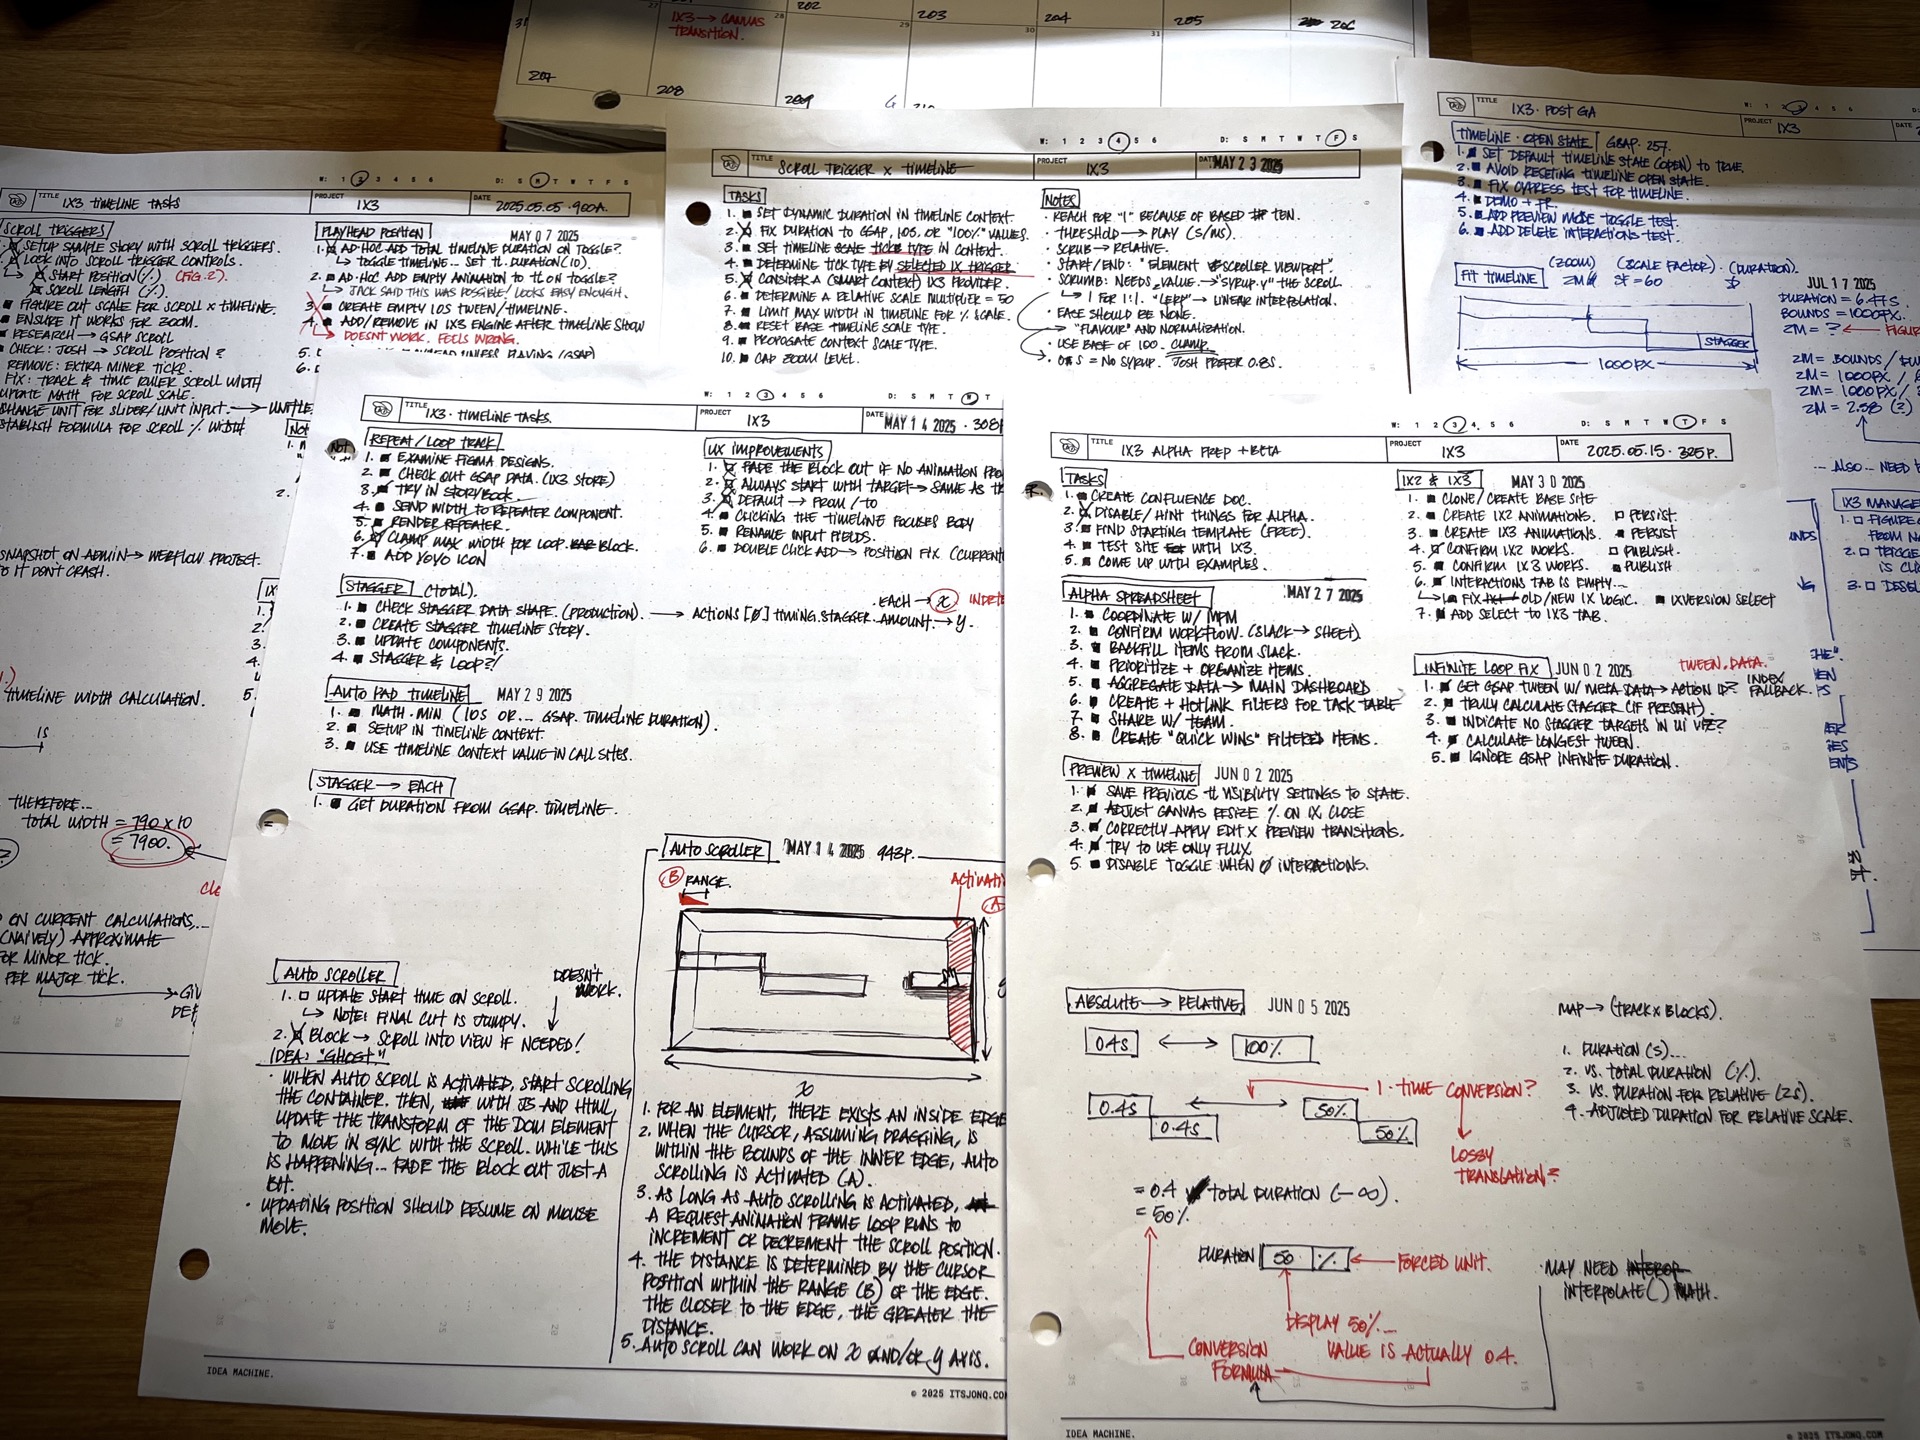 31
27
202
28
203
29
204
30
205
31
206
1X3 → CANVAS
TRANSITION.
207
208
209
210
W: 1 2 3 4 5 6
D: S M T W T F S
TITLE
1X3 TIMELINE TASKS
PROJECT
1X3
DATE
2025.05.05 · 900A.
SCROLL TRIGGERS
SETUP SAMPLE STORY WITH SCROLL TRIGGERS.
LOOK INTO SCROLL TRIGGER CONTROLS.
↳ START POSITION (%) (FIG. 2).
SCROLL LENGTH (%).
FIGURE OUT SCALE FOR SCROLL X TIMELINE.
ENSURE IT WORKS FOR ZOOM.
RESEARCH → GSAP SCROLL
CHECK: JOSH → SCROLL POSITION?
REMOVE: EXTRA MINOR TICKS.
FIX: TRACK & TIME RULER SCROLL WIDTH
UPDATE MATH FOR SCROLL SCALE.
CHANGE UNIT FOR SLIDER/UNIT INPUT. →
ESTABLISH FORMULA FOR SCROLL % WIDTH
SNAPSHOT ON ADMIN → WEBFLOW PROJECT.
TO IT DON'T CRASH.
TIMELINE WIDTH CALCULATION.
1S
THEREFORE...
TOTAL WIDTH = 790 X 10
= 7900.
ON CURRENT CALCULATIONS,...
(NAIVELY) APPROXIMATE
FOR MINOR TICK.
PER MAJOR TICK.
PLAYHEAD POSITION
MAY 07 2025
1. AD-HOC ADD TOTAL TIMELINE DURATION ON TOGGLE?
↳ TOGGLE TIMELINE... SET TL.DURATION(10).
2. AD-HOC ADD EMPTY ANIMATION TO TL ON TOGGLE?
↳ JACK SAID THIS WAS POSSIBLE/LOOKS EASY ENOUGH.
3. CREATE EMPTY 10S TWEEN/TIMELINE.
4. ADD/REMOVE IN 1X3 ENGINE AFTER TIMELINE SHOW
↳ DOESNT WORK. FEELS WRONG.
5.
6.
W: 1 2 3 4 5 6
D: S M T W T F S
TITLE
SCROLL TRIGGER X TIMELINE
PROJECT
1X3
DATE
MAY 23 2025
TASKS
1. SET DYNAMIC DURATION IN TIMELINE CONTEXT.
2. FIX DURATION TO GSAP, 10S, OR "100%" VALUES.
3. SET TIMELINE SCALE TICK TYPE IN CONTEXT.
4. DETERMINE TICK TYPE BY SELECTED IX TRIGGER
5. CONSIDER A (SMART CONTEXT) 1X3 PROVIDER.
6. DETERMINE A RELATIVE SCALE MULTIPLIER = 50
7. LIMIT MAX WIDTH IN TIMELINE FOR % SCALE.
8. RESET BASE TIMELINE SCALE TYPE.
9. PROPOGATE CONTEXT SCALE TYPE.
10. CAP ZOOM LEVEL.
NOTES
· REACH FOR "1" BECAUSE OF BASED TEN.
· THRESHOLD → PLAY (S/MS)
· SCRUB → RELATIVE.
· START/END: "ELEMENT SCROLLER VIEWPORT".
· SCRUMB: NEEDS VALUE. → "SYRUP.Y" THE SCROLL
↳ 1 FOR 1:1. "LERP" → LINEAR INTERPOLATION.
· EASE SHOULD BE NONE.
→ "FLAVOUR" AND NORMALIZATION.
· USE BASE OF 100. CLAMP
· 0S = NO SYRUP. JOSH PREFER 0.8S.
W: 1 2 3 4 5 6
TITLE
1X3 · POST GA
PROJECT
1X3
TIMELINE · OPEN STATE | GSAP · 257.
1. SET DEFAULT TIMELINE STATE (OPEN) TO TRUE.
2. AVOID RESETING TIMELINE OPEN STATE.
3. FIX CYPRESS TEST FOR TIMELINE.
4. DEMO + PR.
5. ADD PREVIEW MODE TOGGLE TEST.
6. ADD DELETE INTERACTIONS TEST.
FIT TIMELINE
(ZOOM) (SCALE FACTOR) · (DURATION).
ZM SF = 60
STAGGER
1000PX
JUL 17 2025
DURATION = 6.47S
BOUNDS = 1000PX.
ZM = ?
ZM = BOUNDS /
ZM = 1000PX /
ZM = 1000PX /
ZM = 2.58 (?)
... ALSO... NEED
W: 1 2 3 4 5 6
D: S M T W T
TITLE
1X3 · TIMELINE TASKS.
PROJECT
1X3
DATE
MAY 14 2025 · 308P
REPEAT/LOOP TRACK
1. EXAMINE FIGMA DESIGNS.
2. CHECK OUT GSAP DATA. (1X3 STORE)
3. TRY IN STORYBOOK.
4. SEND WIDTH TO REPEATER COMPONENT.
5. RENDER REPEATER.
6. CLAMP MAX WIDTH FOR LOOP BLOCK.
7. ADD YOYO ICON
UX IMPROVEMENTS
1. FADE THE BLOCK OUT IF NO ANIMATION PRO
2. ALWAYS START WITH TARGET → SAME AS TR
3. DEFAULT → FROM/TO
4. CLICKING THE TIMELINE FOCUSES BODY
5. RENAME INPUT FIELDS.
6. DOUBLE CLICK ADD → POSITION FIX (CURRENT
STAGGER (TOTAL).
1. CHECK STAGGER DATA SHAPE. (PRODUCTION). → ACTIONS[0] TIMING.STAGGER. AMOUNT → Y.
EACH → X
2. CREATE STAGGER TIMELINE STORY.
3. UPDATE COMPONENTS.
4. STAGGER & LOOP?!
AUTO PAD TIMELINE
MAY 29 2025
1. MATH.MIN (10S OR... GSAP. TIMELINE DURATION).
2. SETUP IN TIMELINE CONTEXT.
3. USE TIMELINE CONTEXT VALUE IN CALL SITES.
STAGGER → EACH
1. GET DURATION FROM GSAP. TIMELINE.
AUTO SCROLLER
1. UPDATE START TIME ON SCROLL.
↳ NOTE: FINAL CUT IS JUMPY.
2. BLOCK → SCROLL INTO VIEW IF NEEDED!
DOESN'T
WORK.
IDEA: "GHOST"!
· WHEN AUTO SCROLL IS ACTIVATED, START SCROLLING
THE CONTAINER. THEN, WITH JS AND HTML,
UPDATE THE TRANSFORM OF THE DOM ELEMENT
TO MOVE IN SYNC WITH THE SCROLL. WHILE THIS
IS HAPPENING... FADE THE BLOCK OUT JUST A
BIT.
· UPDATING POSITION SHOULD RESUME ON MOUSE
MOVE.
AUTO SCROLLER
MAY 14 2025 943P.
B RANGE.
ACTIVATI
A
X
1. FOR AN ELEMENT, THERE EXISTS AN INSIDE EDGE
2. WHEN THE CURSOR, ASSUMING DRAGGING, IS
WITHIN THE BOUNDS OF THE INNER EDGE, AUTO
SCROLLING IS ACTIVATED (A).
3. AS LONG AS AUTO SCROLLING IS ACTIVATED,
A REQUEST ANIMATION FRAME LOOP RUNS TO
INCREMENT OR DECREMENT THE SCROLL POSITION.
4. THE DISTANCE IS DETERMINED BY THE CURSOR
POSITION WITHIN THE RANGE (B) OF THE EDGE.
THE CLOSER TO THE EDGE, THE GREATER THE
DISTANCE.
5. AUTO SCROLL CAN WORK ON X AND/OR Y AXIS.
IDEA MACHINE.
© 2025 ITSJONQ.CO
W: 1 2 3 4 5 6
D: S M T W T F S
TITLE
1X3 ALPHA PREP + BETA
PROJECT
1X3
DATE
2025.05.15 · 325P.
TASKS
1. CREATE CONFLUENCE DOC.
2. DISABLE/HINT THINGS FOR ALPHA.
3. FIND STARTING TEMPLATE (FREE).
4. TEST SITE WITH 1X3.
5. COME UP WITH EXAMPLES.
ALPHA SPREADSHEET
MAY 27 2025
1. COORDINATE W/ MPM
2. CONFIRM WORKFLOW. (SLACK → SHEET)
3. BACKFILL ITEMS FROM SLACK.
4. PRIORITIZE + ORGANIZE ITEMS.
5. AGGREGATE DATA → MAIN DASHBOARD
6. CREATE + HOTLINK FILTERS FOR TASK TABLE
7. SHARE W/ TEAM.
8. CREATE "QUICK WINS" FILTERED ITEMS.
PREVIEW X TIMELINE
JUN 02 2025
1. SAVE PREVIOUS TL VISIBILITY SETTINGS TO STATE.
2. ADJUST CANVAS RESIZE % ON IX CLOSE
3. CORRECTLY APPLY EDIT X PREVIEW TRANSITIONS.
4. TRY TO USE ONLY FLUX
5. DISABLE TOGGLE WHEN 0 INTERACTIONS.
1X2 & 1X3
MAY 30 2025
1. CLONE/CREATE BASE SITE
2. CREATE 1X2 ANIMATIONS. PERSIST.
3. CREATE 1X3 ANIMATIONS. PERSIST
4. CONFIRM 1X2 WORKS. PUBLISH.
5. CONFIRM 1X3 WORKS. PUBLISH
6. INTERACTIONS TAB IS EMPTY...
↳ FIX OLD/NEW IX LOGIC. IXVERSION SELECT
7. ADD SELECT TO 1X3 TAB.
INFINITE LOOP FIX
JUN 02 2025
TWEEN.DATA.
1. GET GSAP TWEEN W/ META DATA → ACTION ID? INDEX
FALLBACK.
2. TRULY CALCULATE STAGGER (IF PRESENT).
3. INDICATE NO STAGGER TARGETS IN UI VIZ?
4. CALCULATE LONGEST TWEEN.
5. IGNORE GSAP INFINITE DURATION.
ABSOLUTE → RELATIVE
JUN 05 2025
0.4S ↔ 100%
0.4S ↔ 50%
0.4S 50%
1. TIME CONVERSION?
LOSSY
TRANSLATION?
= 0.4 TOTAL DURATION (-∞).
= 50%
DURATION 50 % ← FORCED UNIT.
DISPLAY 50%...
VALUE IS ACTUALLY 0.4.
CONVERSION
FORMULA
MAP → (TRACK X BLOCKS).
1. DURATION (S)...
2. VS. TOTAL DURATION (%).
3. VS. DURATION FOR RELATIVE (2S).
4. ADJUSTED DURATION FOR RELATIVE SCALE.
· MAY NEED
INTERPOLATE() MATH.
IDEA MACHINE.
© 2025 ITSJONQ.CO
1X3 MANAGE
1. FIGURE
FROM N
2. TRIGGE
IS CL
3. DESEL